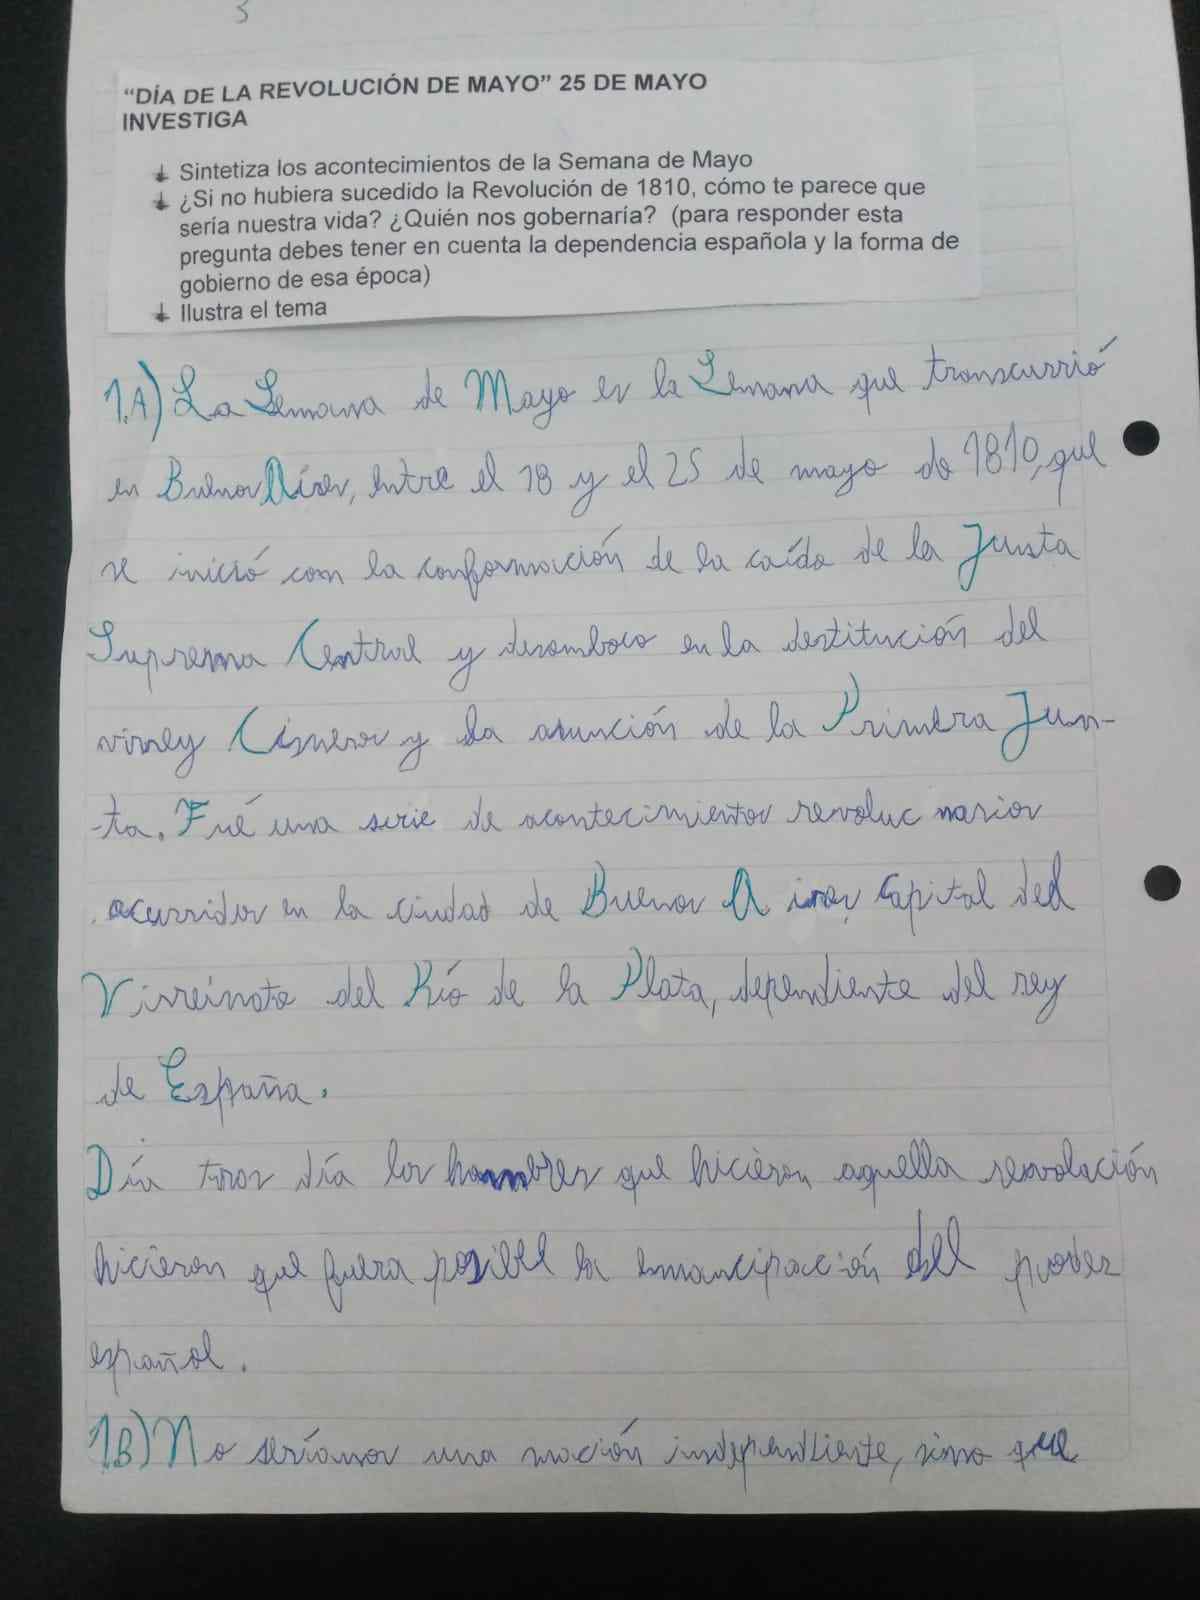 3
“DÍA DE LA REVOLUCIÓN DE MAYO” 25 DE MAYO
INVESTIGA
Sintetiza los acontecimientos de la Semana de Mayo
¿Si no hubiera sucedido la Revolución de 1810, cómo te parece que
sería nuestra vida? ¿Quién nos gobernaría? (para responder esta
pregunta debes tener en cuenta la dependencia española y la forma de
gobierno de esa época)
Ilustra el tema
1.A) La Semana de Mayo es la Semana que transcurrió
en Buenos Aires, entre el 18 y el 25 de mayo de 1810, que
se inició con la conformación de la caída de la Junta
Suprema Central y desemboco en la destitución del
virrey Cisneros y la asunción de la Primera Jun-
-ta. Fué una serie de acontecimientos revolucionarios
ocurridos en la ciudad de Buenos Aires, Capital del
Virreinato del Río de la Plata, dependiente del rey
de España.
Día tras día los hombres que hicieron aquella revolución
hicieron que fuera posible la emancipación del poder
español.
1.B) No seríamos una nación independiente, sino que